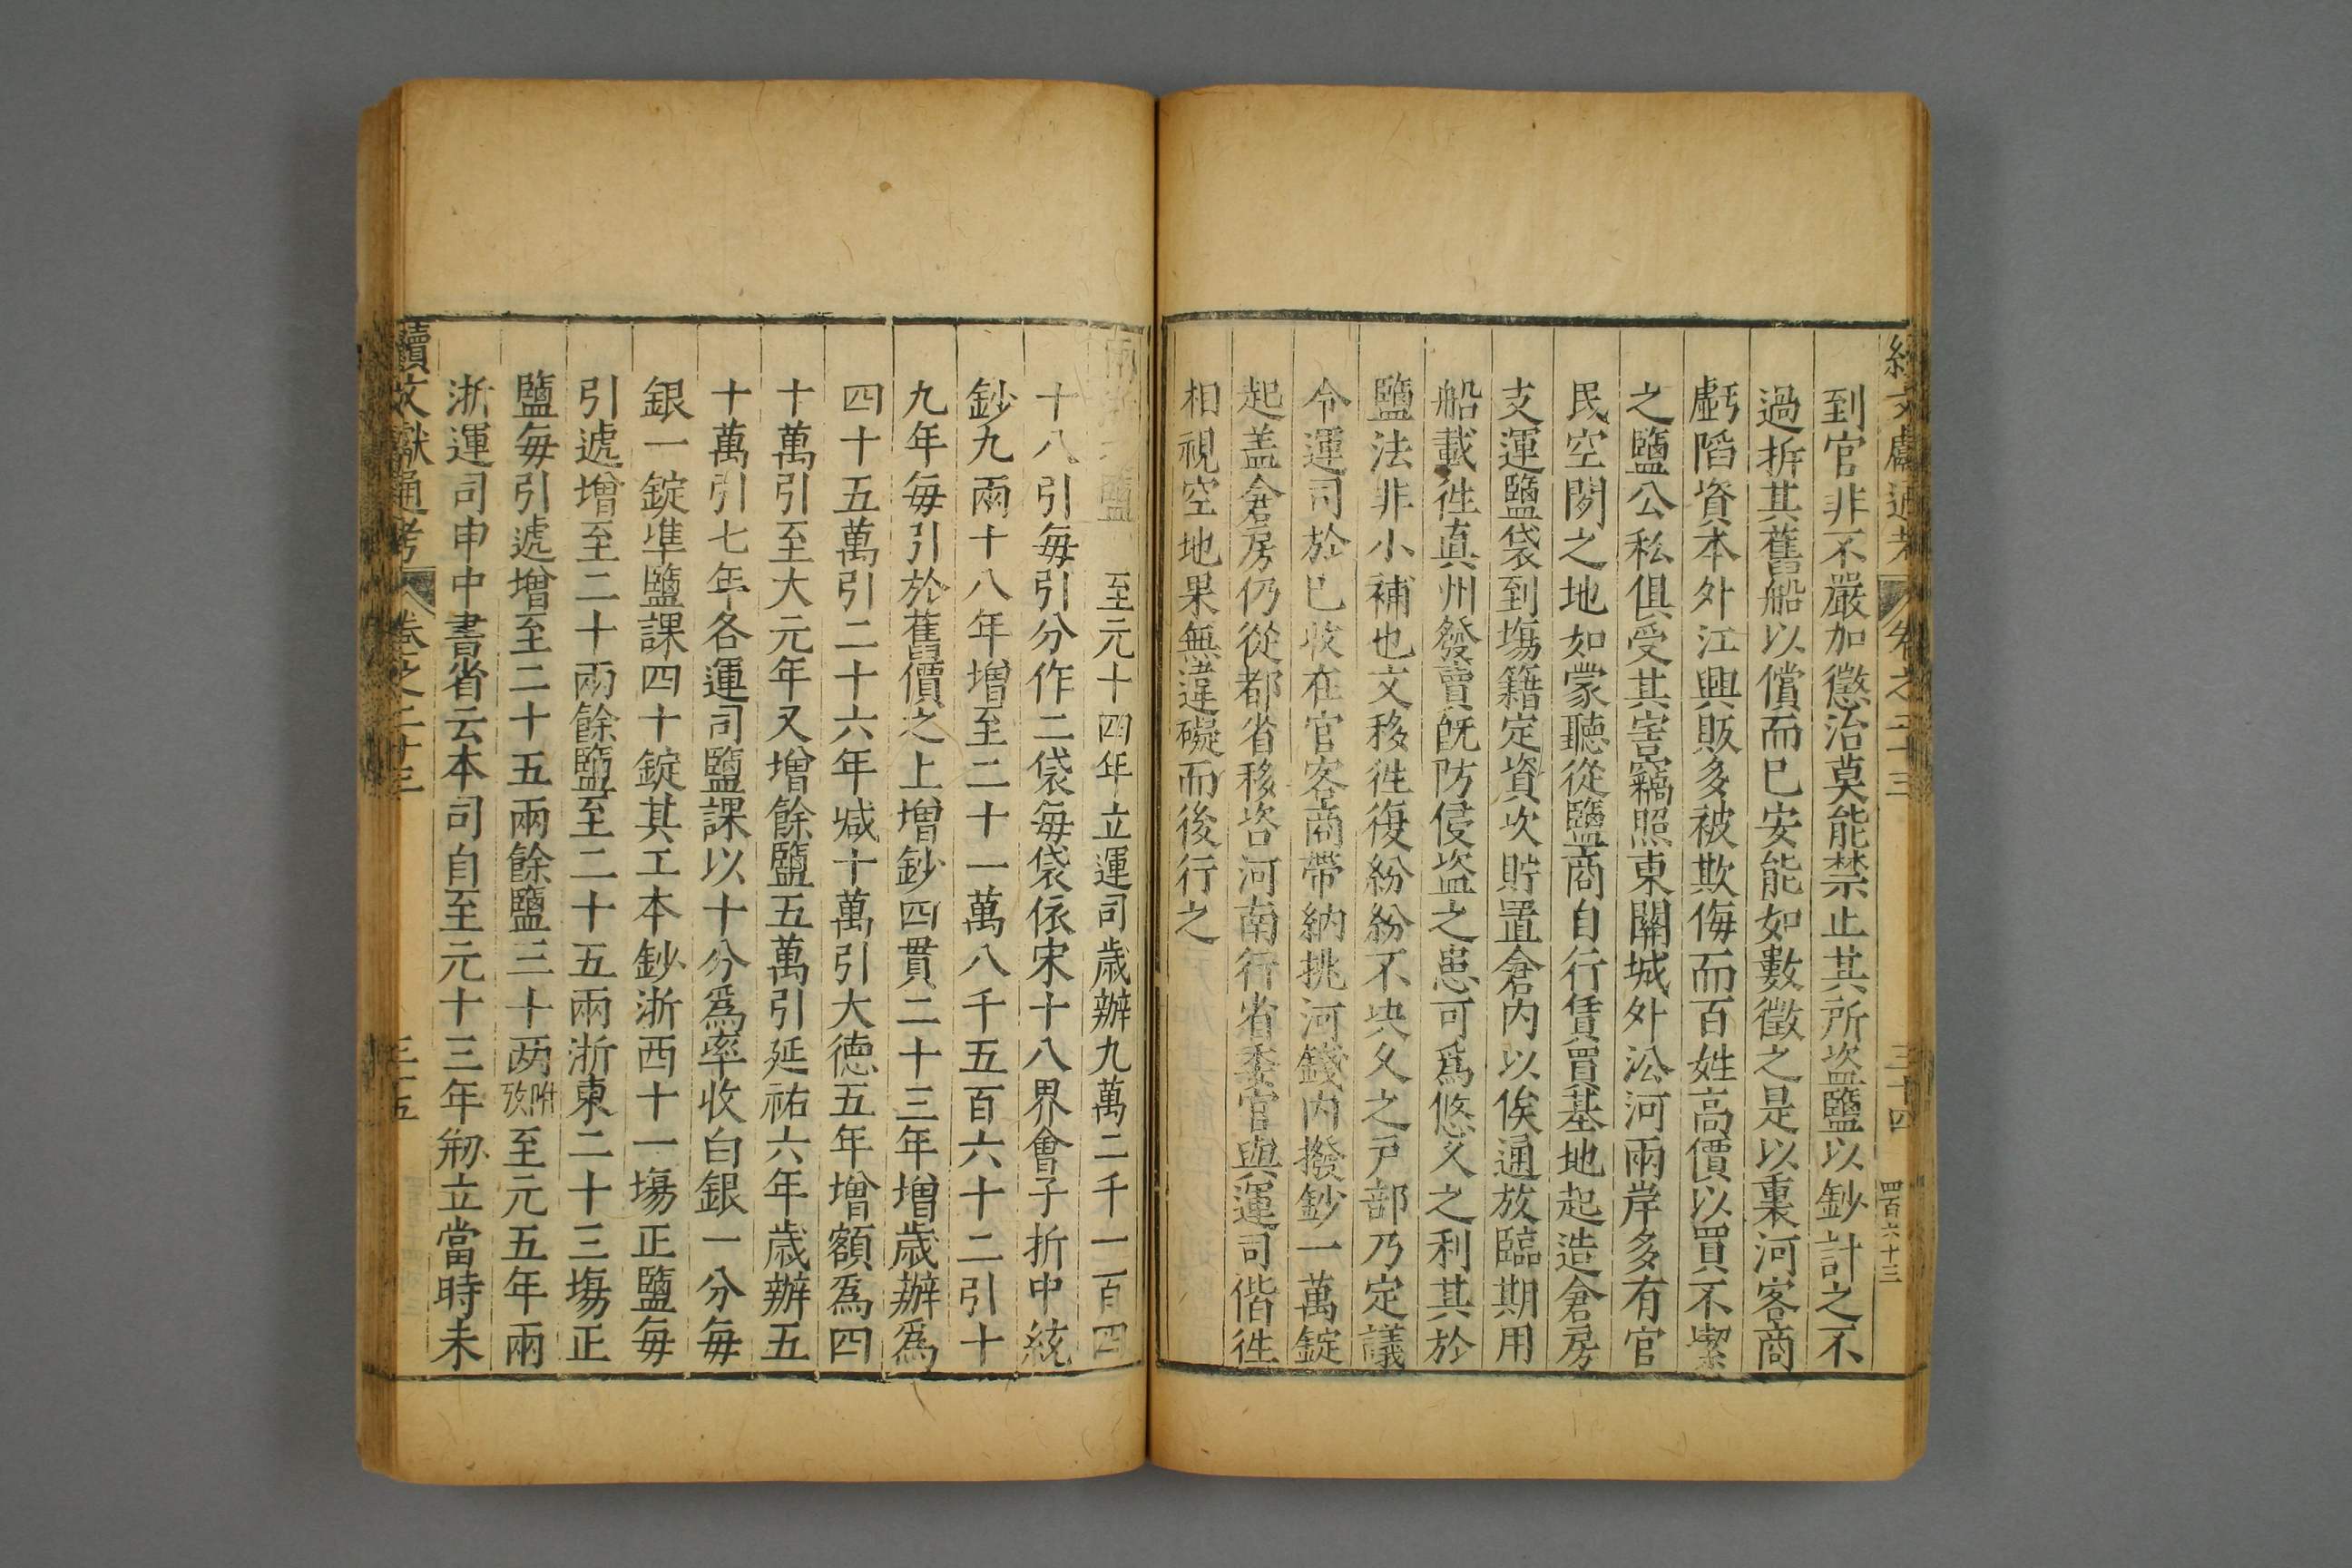 續文獻通考 卷之二十三 三十四 四百六十三
到官非不嚴加懲治莫能禁止其所盗鹽以鈔計之不
過折其舊船以償而已安能如數徵之是以裏河客商
虧䧟資本外江興販多被欺侮而百姓高價以買不潔
之鹽公私俱受其害竊照東關城外沿河兩岸多有官
民空閒之地如蒙聽從鹽商自行賃買基地起造倉房
支運鹽袋到塲籍定資次貯置倉内以俟通放臨期用
船載徃真州發賣旣防侵盗之患可爲悠久之利其於
鹽法非小補也文移徃復紛紛不决久之戸部乃定議
令運司於已收在官客商帶納挑河錢内撥鈔一萬錠
起盖倉房仍從都省移咨河南行省委官與運司偕徃
相視空地果無違礙而後行之
至元十四年立運司歳辦九萬二千一百四
十八引每引分作二袋每袋依宋十八界會子折中統
鈔九兩十八年増至二十一萬八千五百六十二引十
九年毎引於舊價之上増鈔四貫二十三年増歳辦爲
四十五萬引二十六年减十萬引大徳五年増額爲四
十萬引至大元年又増餘鹽五萬引延祐六年歳辦五
十萬引七年各運司鹽課以十分爲率收白銀一分毎
銀一錠凖鹽課四十錠其工本鈔浙西十一塲正鹽毎
引遞增至二十兩餘鹽至二十五兩浙東二十三塲正
鹽毎引遞增至二十五兩餘鹽三十两附攷至元五年兩
浙運司申中書省云本司自至元十三年剏立當時未
續文獻通考 卷之二十三 三十五